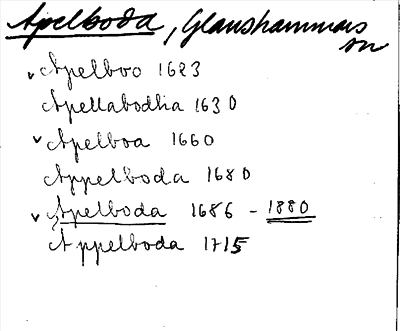 Apelboda, Glanshammars
sn
Apelboo 1623
Apellabodha 1630
Apelboa 1660
Appelboda 1680
Apelboda 1686 - 1880
Appelboda 1715